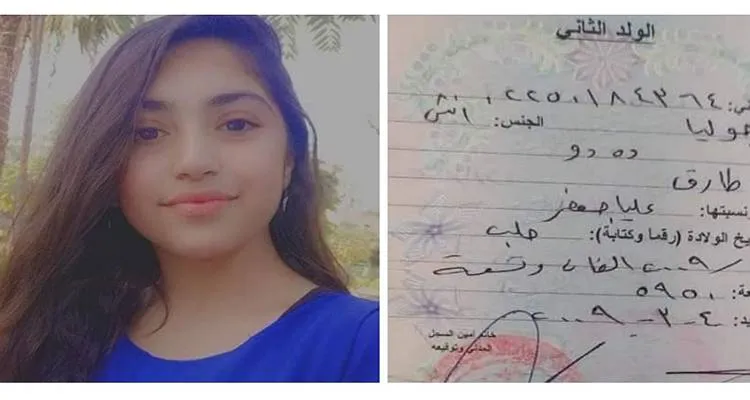 الولد الثاني
جوليا الجنس: انثى
ده دو
طارق
نسبتها: عليا جعفر
يخ الولادة (رقما وكتابة): حلب
٢٠٠٩ الفان وتسعة
٥٩٥٠
٤-٣-٢٠٠٩
خاتم أمين السجل
المدني وتوقيعه